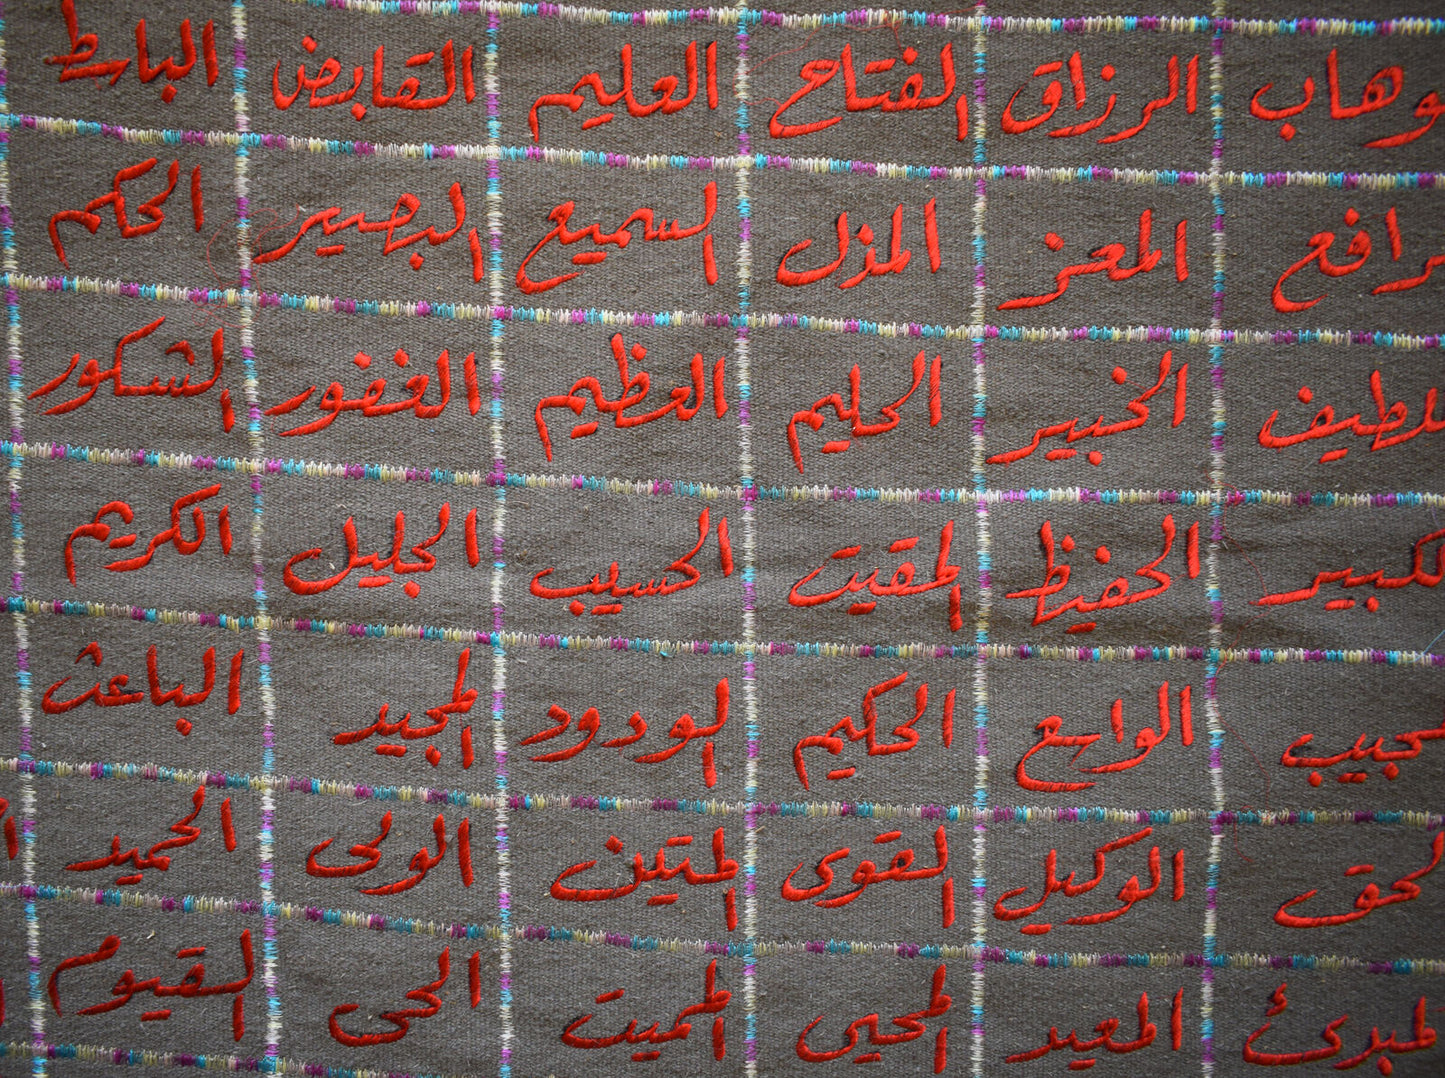 وهاب الرزاق الفتاح العليم القابض الباسط
رافع المعز المذل السميع البصير الحكم
للطيف الخبير الحليم العظيم الغفور الشكور
لكبير الحفيظ المقيت الحسيب الجليل الكريم
مجيب الواسع الحكيم الودود المجيد الباعث
لحق الوكيل القوى المتين الولى الحميد
لمبدئ المعيد المحيى المميت الحى القيوم